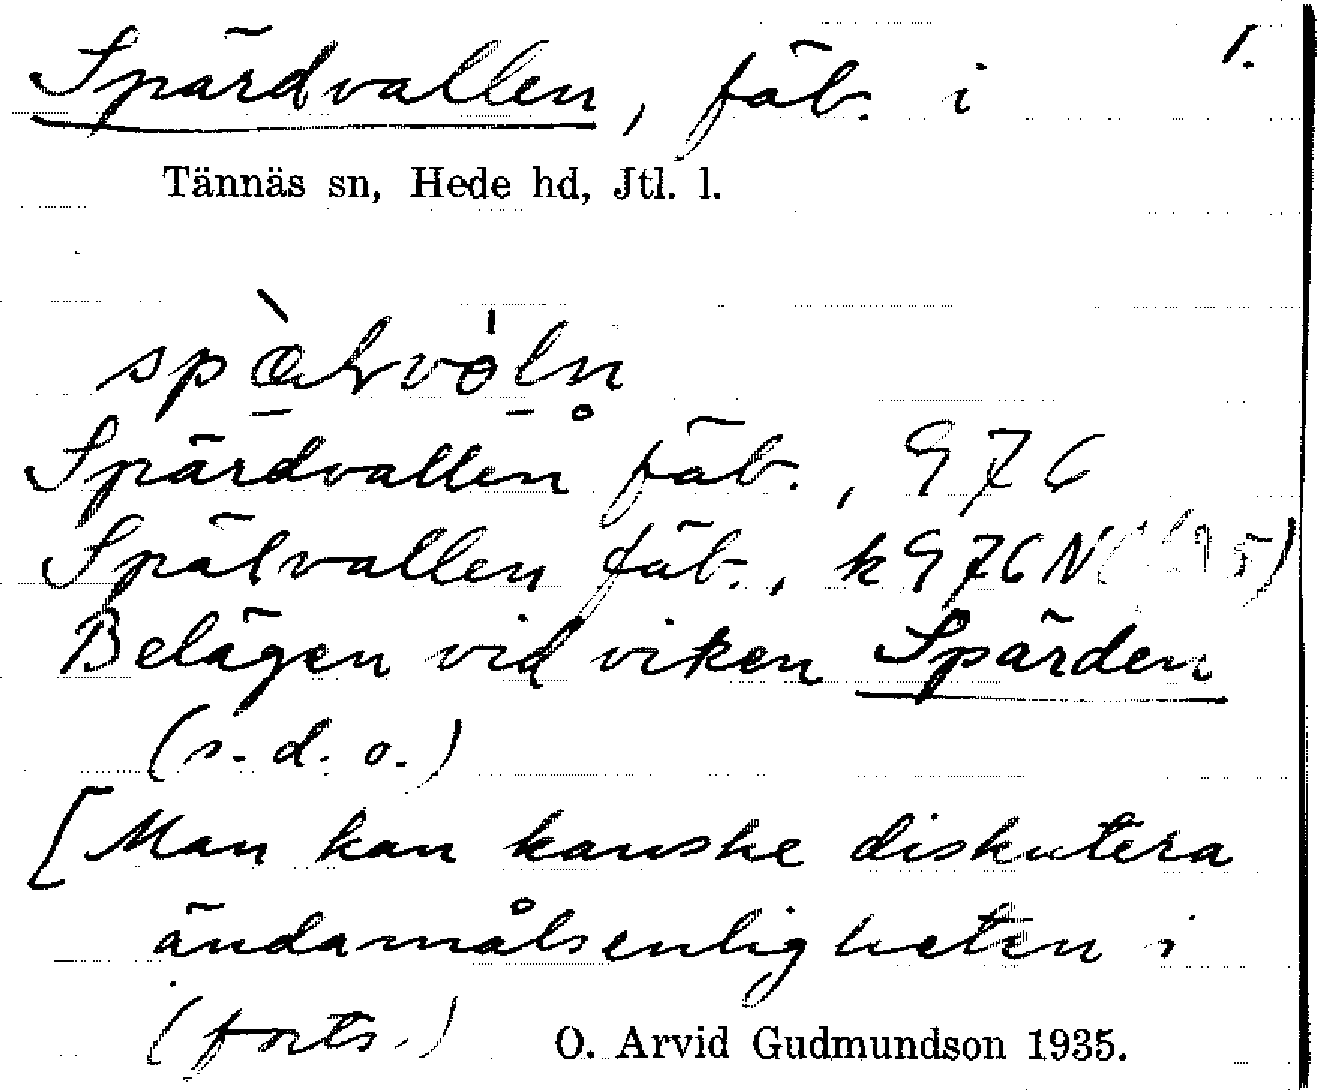 Spärdvallen, fäb. i 1.
Tännäs sn, Hede hd, Jtl. l.
Spärdvallen fäb., G76
Spälvallen fäb., kG76N
Belägen vid viken Spärden
(s. d. o.)
[Man kan kanske diskutera
ändamålsenligheten i
(forts.) O. Arvid Gudmundson 1935.